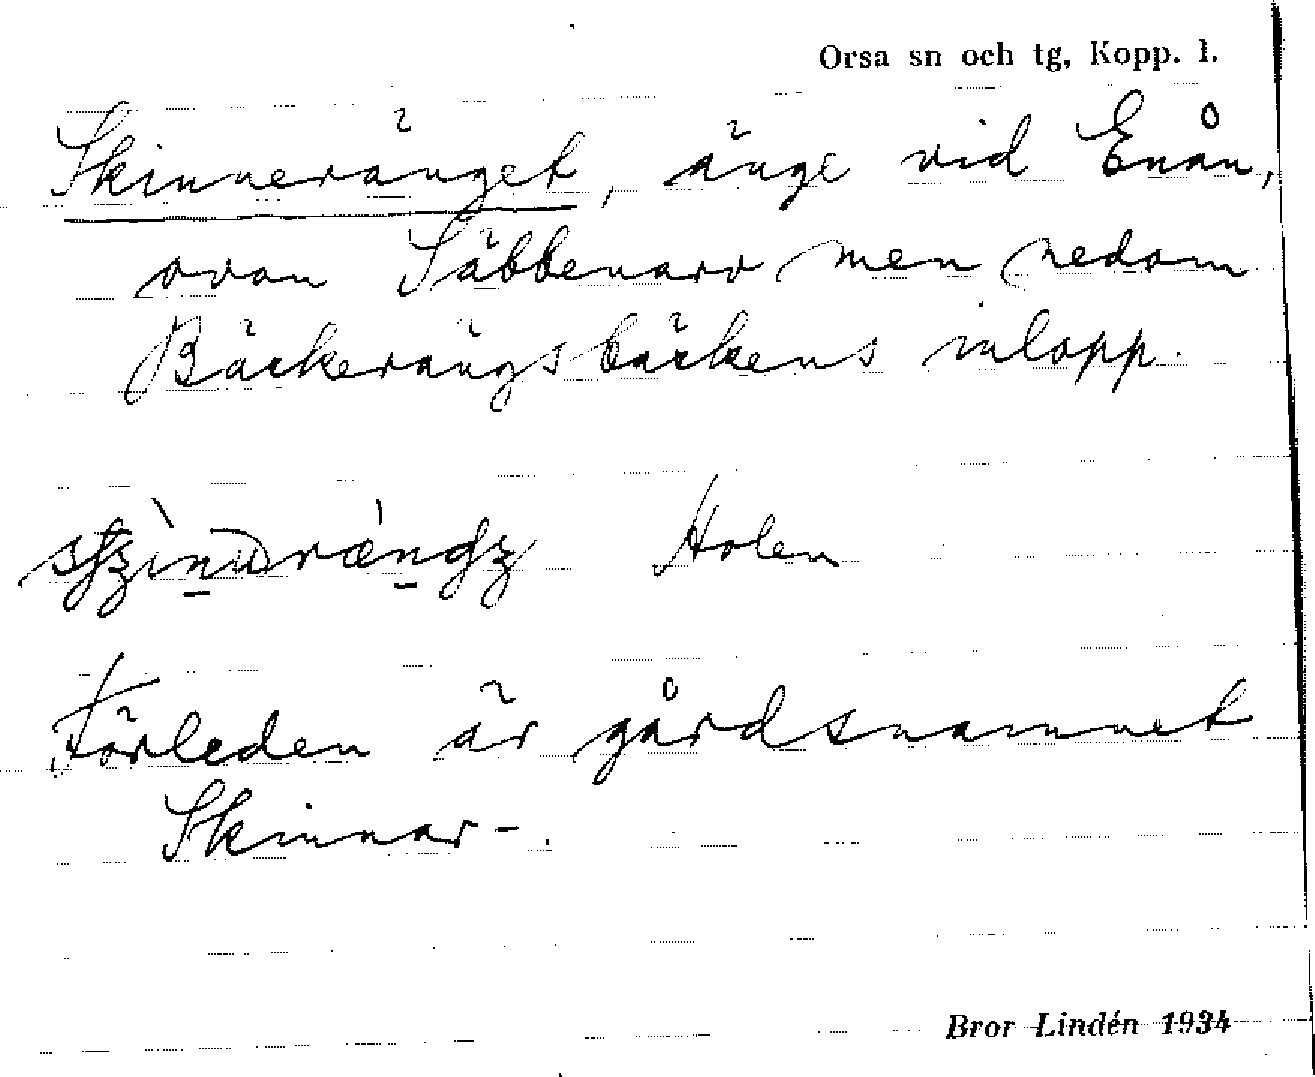 Orsa sn och tg, Kopp. l.
Skinneränget, änge vid Enån,
ovan Säbbenarv men nedom
Bäckerängsbäckens inlopp.
Holen
Förleden är gårdsnamnet
Skinnar-.
Bror Lindén 1934